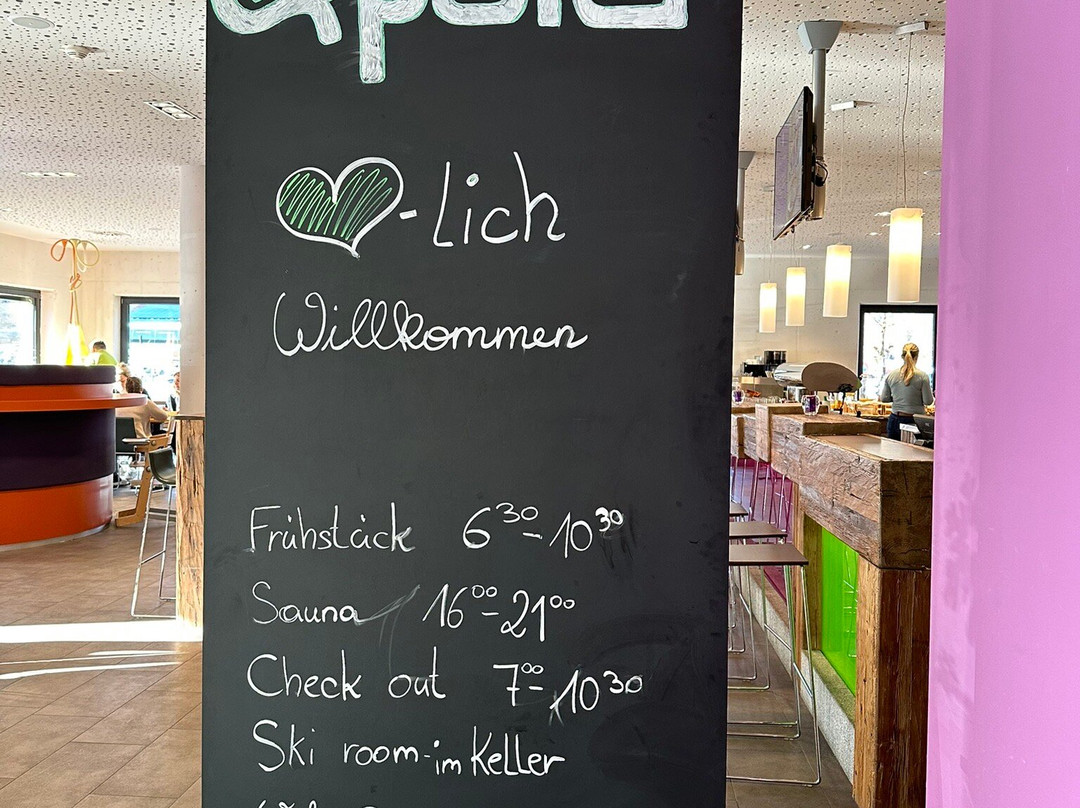 -lich
Willkommen
Frühstück 6³⁰-10³⁰
Sauna 16⁰⁰-21⁰⁰
Check out 7⁰⁰-10³⁰
Ski room-im Keller